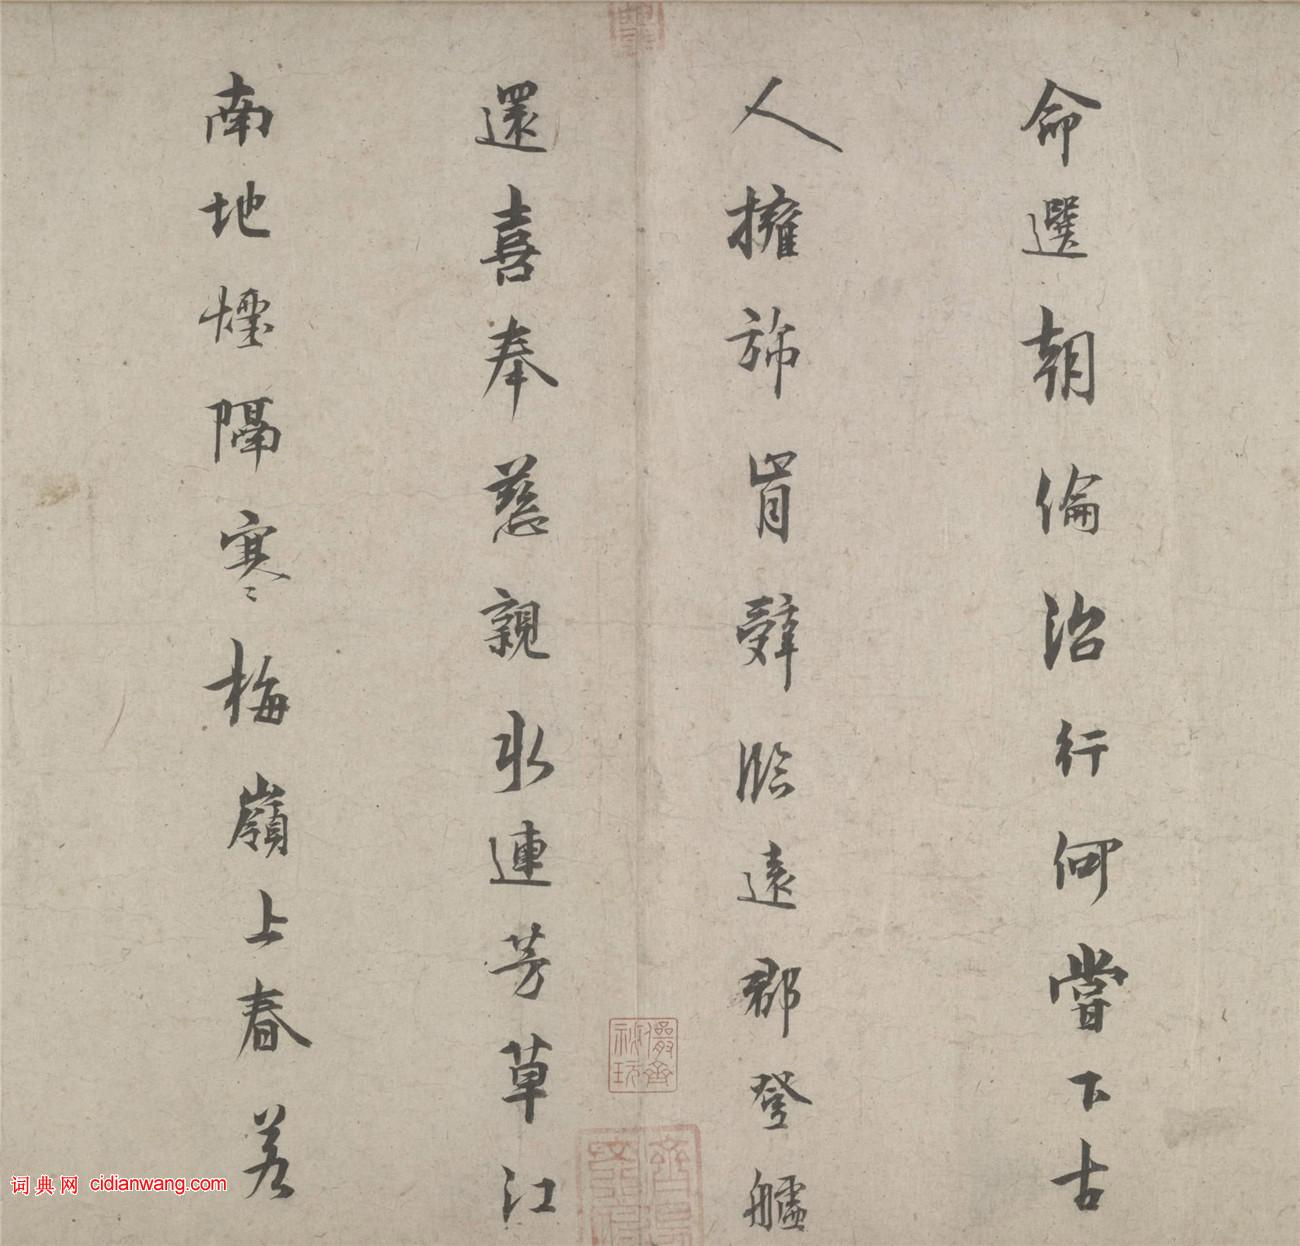 命選朝倫治行何嘗下古
人擁旆肯辭臨遠郡登艫
還喜奉慈親水連芳草江
南地煙隔寒梅嶺上春若
儼齋秘玩
词典网 cidianwang.com